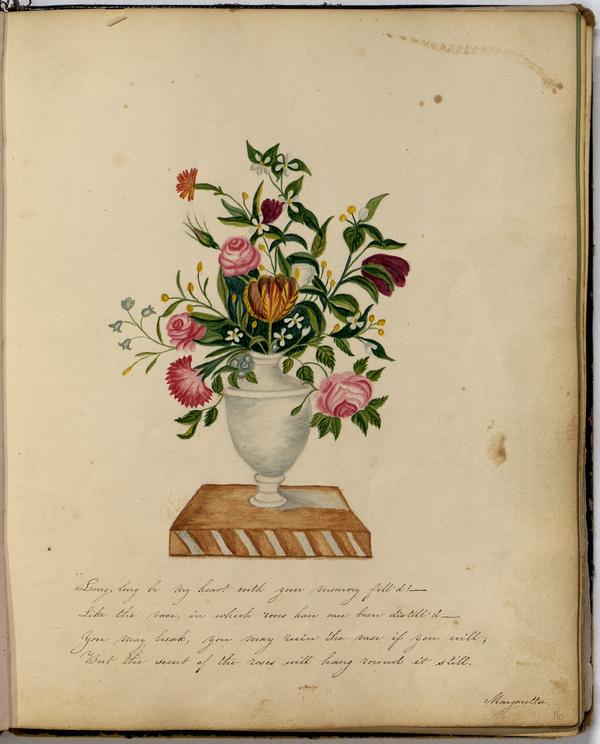 "Long, long be my heart with your memory fill'd! —
Like the vase, in which roses have once been distill'd —
You may break, you may ruin the vase if you will,
But the scent of the roses will hang round it still.
Margaretta.